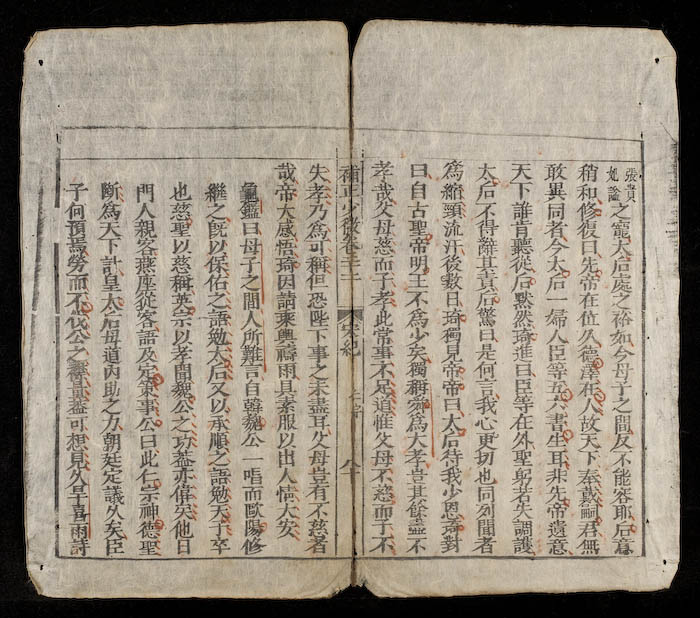 張貴
妃諡
之寵太后處之裕如今母子之間反不能容耶后意
稍和修復曰先帝在位久德澤在人故天下奉戴嗣君無
敢異同者今太后一婦人臣等五六書生耳非先帝遺意
天下誰肯聽從后黙然琦進曰臣等在外聖躬若失調護
太后不得辭其責后驚曰是何言我心更切也同列聞者
爲縮頸流汗後數日琦獨見帝帝曰太后待我少恩琦對
曰自古聖帝明王不爲少矣獨稱舜爲大孝豈其餘盡不
孝哉父母慈而子孝此常事不足道惟父母不慈而子不
補正少微卷三十二 宋紀 八十
失孝乃爲可稱但恐陛下事之未盡耳父母豈有不慈者
哉帝大感悟琦因請乘輿禱雨具素服以出人情大安
龜鑑曰母子之間人所難言自韓魏公一唱而歐陽修
繼之旣以保佑之語勉太后又以承順之語勉天子卒
也慈聖以慈稱英宗以孝聞魏公之功葢亦偉矣他日
門人親客燕座從容語及定策事公曰此仁宗神德聖
斷爲天下計皇太后母道內助之力朝廷定議久矣臣
子何預焉勞而不伐公之量葢可想見久旱喜雨詩